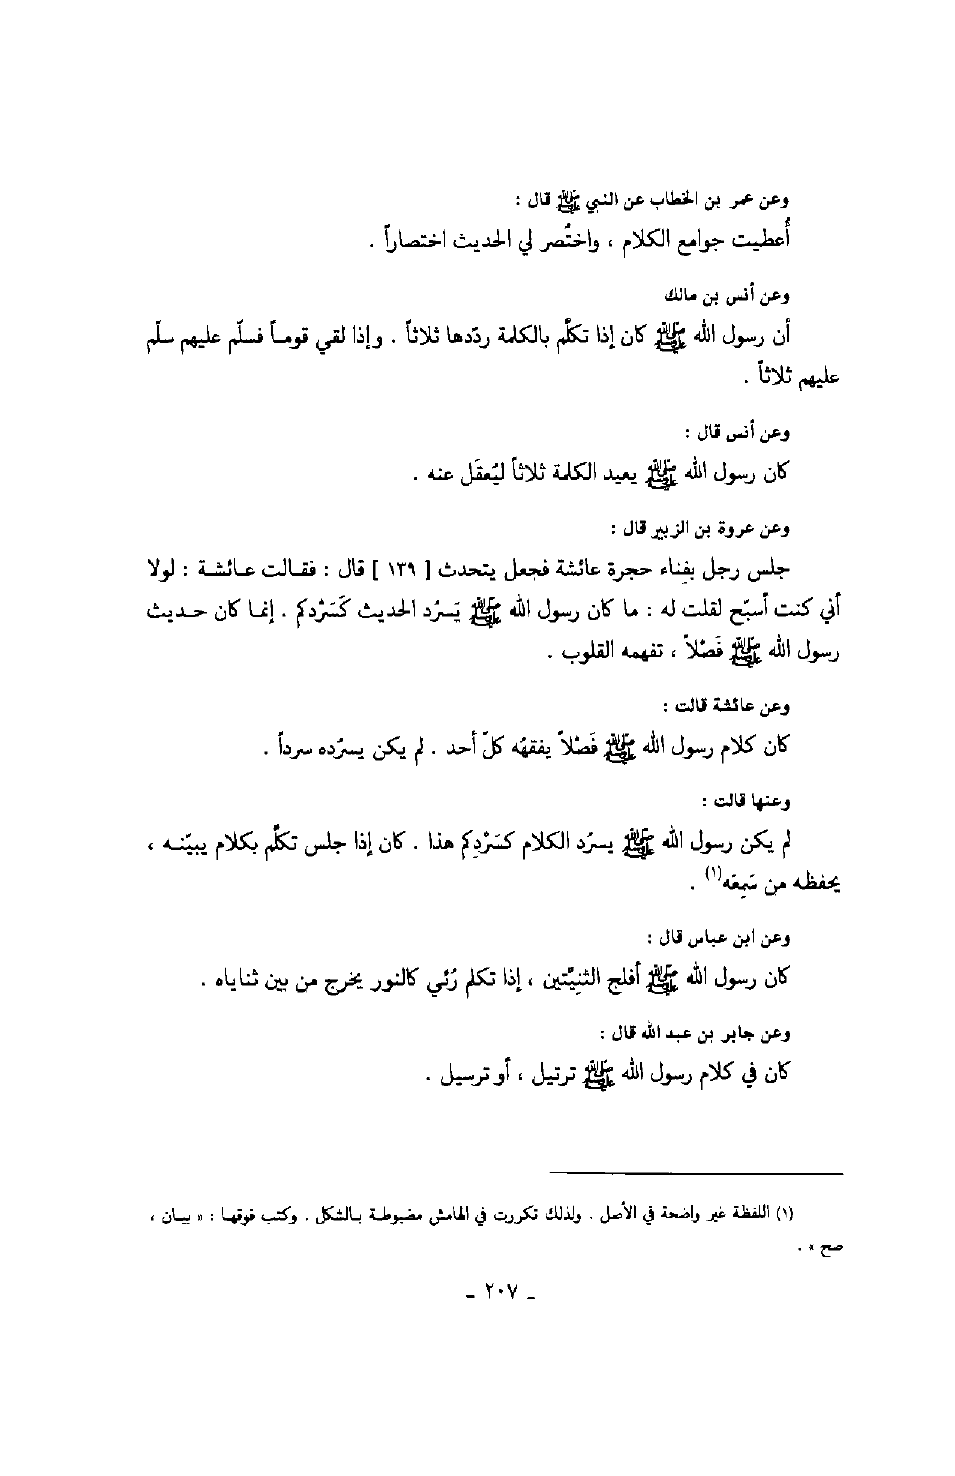 وعن عمر بن الخطاب عن النبي ﷺ قال :
أُعطيت جوامع الكلام ، واختُصر لي الحديث اختصاراً .
وعن أنس بن مالك
أن رسول الله ﷺ كان إذا تكلَّم بالكلمة ردّدها ثلاثاً . وإذا لقي قوماً فسلّم عليهم سلّم
عليهم ثلاثاً .
وعن أنس قال :
كان رسول الله ﷺ يعيد الكلمة ثلاثاً ليُعقَل عنه .
وعن عروة بن الزبير قال :
جلس رجل بفِناء حجرة عائشة فجعل يتحدث [ ١٣٩ ] قال : فقالت عائشة : لولا
أني كنت أسبّح لقلت له : ما كان رسول الله ﷺ يَسرُد الحديث كَسَرْدكم . إنما كان حديث
رسول الله ﷺ فَصْلاً ، تفهمه القلوب .
وعن عائشة قالت :
كان كلام رسول الله ﷺ فَصْلاً يفقهُه كلّ أحد . لم يكن يسرُده سرداً .
وعنها قالت :
لم يكن رسول الله ﷺ يسرُد الكلام كسَرْدِكم هذا . كان إذا جلس تكلَّم بكلام يبيّنه ،
يحفظه من سَمِعَه(١) .
وعن ابن عباس قال :
كان رسول الله ﷺ أفلج الثنِيَّتين ، إذا تكلم رُئي كالنور يخرج من بين ثناياه .
وعن جابر بن عبد الله قال :
كان في كلام رسول الله ﷺ ترتيل ، أو ترسيل .
(١) اللفظة غير واضحة في الأصل . ولذلك تكررت في الهامش مضبوطة بالشكل . وكتب فوقها : « بيان ،
صح » .
ـ ٢٠٧ ـ